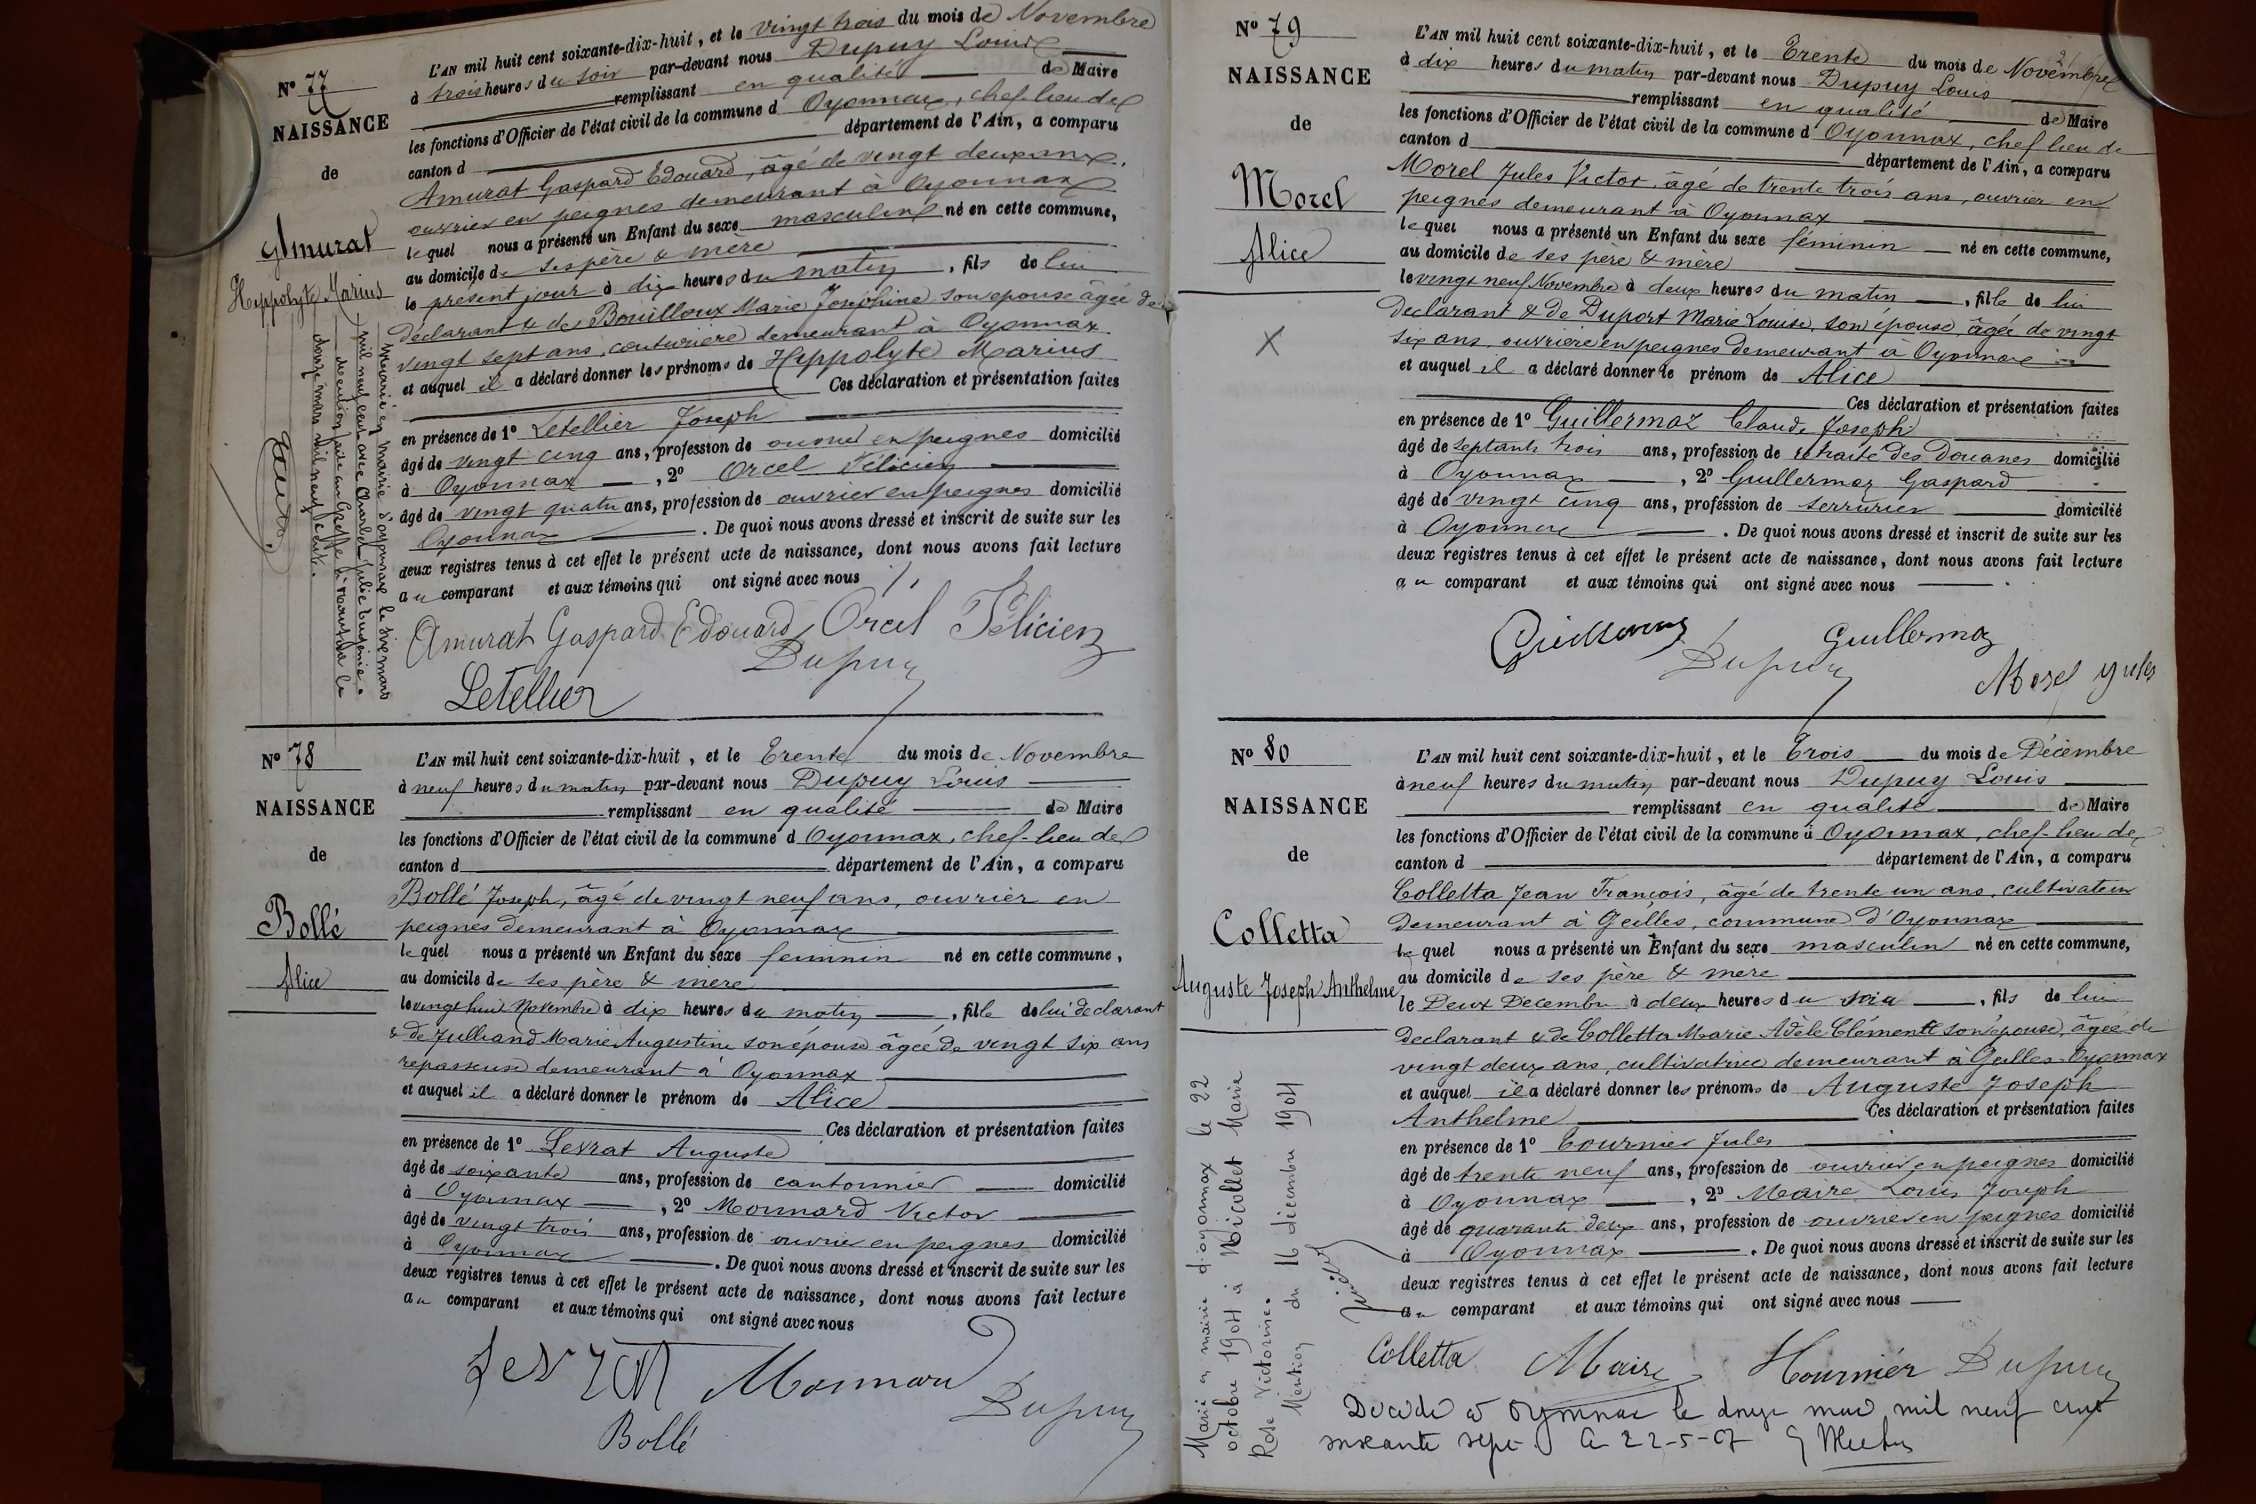 Nº 77
NAISSANCE
de
Amurat
Hippolyte Marius
L'AN mil huit cent soixante-dix-huit, et le vingt trois du mois de Novembre
à trois heures du soir par-devant nous Dupuy Louis
remplissant en qualité de Maire
les fonctions d'Officier de l'état civil de la commune d Oyonnax, chef-lieu de
canton d département de l'Ain, a comparu
Amurat Gaspard Edouard, âgé de vingt deux ans,
ouvrier en peignes demeurant à Oyonnax
le quel nous a présenté un Enfant du sexe masculin né en cette commune,
au domicile de ses père & mère
le présent jour à dix heures du matin, fils de lui
déclarant & de Bouilloux Marie Joséphine son épouse âgée de
vingt sept ans, couturière demeurant à Oyonnax
et auquel il a déclaré donner les prénoms de Hippolyte Marius
Ces déclaration et présentation faites
en présence de 1º Letellier Joseph
âgé de vingt cinq ans, profession de ouvrier en peignes domicilié
à Oyonnax, 2º Orcel Félicien
âgé de vingt quatre ans, profession de ouvrier en peignes domicilié
Oyonnax. De quoi nous avons dressé et inscrit de suite sur les
deux registres tenus à cet effet le présent acte de naissance, dont nous avons fait lecture
au comparant et aux témoins qui ont signé avec nous
Amurat Gaspard Edouard Orcel Félicien
Dupuy
Letellier
en mairie d'oyonnax le six mars
mil neuf cent avec Julie Eugénie.
mention faite au Greffe à Nantua le
douze mars mil neuf cent
Nº 78
NAISSANCE
de
Bollé
Alice
L'AN mil huit cent soixante-dix-huit, et le Trente du mois de Novembre
à neuf heures du matin par-devant nous Dupuy Louis
remplissant en qualité de Maire
les fonctions d'Officier de l'état civil de la commune d Oyonnax, chef-lieu de
canton d département de l'Ain, a comparu
Bollé Joseph, âgé de vingt neuf ans, ouvrier en
peignes demeurant à Oyonnax
le quel nous a présenté un Enfant du sexe feminin né en cette commune,
au domicile de ses père & mère
le vingt huit Novembre à dix heures du matin, fille de lui déclarant
& de Julliand Marie Augustine son épouse âgée de vingt six ans
repasseuse demeurant à Oyonnax
et auquel il a déclaré donner le prénom de Alice
Ces déclaration et présentation faites
en présence de 1º Levrat Auguste
âgé de soixante ans, profession de cantonnier domicilié
à Oyonnax, 2º Monnard Victor
âgé de vingt trois ans, profession de ouvrier en peignes domicilié
à Oyonnax. De quoi nous avons dressé et inscrit de suite sur les
deux registres tenus à cet effet le présent acte de naissance, dont nous avons fait lecture
au comparant et aux témoins qui ont signé avec nous
Levrat Monnard
Dupuy
Bollé
Nº 79
NAISSANCE
de
Morel
Alice
X
L'AN mil huit cent soixante-dix-huit, et le Trente du mois de Novembre
à dix heures du matin par-devant nous Dupuy Louis
remplissant en qualité de Maire
les fonctions d'Officier de l'état civil de la commune d Oyonnax, chef lieu de
canton d département de l'Ain, a comparu
Morel Jules Victor, âgé de trente trois ans, ouvrier en
peignes demeurant à Oyonnax
le quel nous a présenté un Enfant du sexe féminin né en cette commune,
au domicile de ses père & mère
le vingt neuf Novembre à deux heures du matin, fille de lui
déclarant & de Duport Marie Louise, son épouse, âgée de vingt
six ans, ouvrière en peignes demeurant à Oyonnax
et auquel il a déclaré donner le prénom de Alice
Ces déclaration et présentation faites
en présence de 1º Guillermoz Claude Joseph
âgé de septante trois ans, profession de retraité des Douanes domicilié
à Oyonnax, 2º Guillermoz Gaspard
âgé de vingt cinq ans, profession de serrurier domicilié
à Oyonnax. De quoi nous avons dressé et inscrit de suite sur les
deux registres tenus à cet effet le présent acte de naissance, dont nous avons fait lecture
au comparant et aux témoins qui ont signé avec nous
Guillermoz Guillermoz
Dupuy Morel Jules
Nº 80
NAISSANCE
de
Colletta
Auguste Joseph Anthelme
L'AN mil huit cent soixante-dix-huit, et le Trois du mois de Décembre
à neuf heures du matin par-devant nous Dupuy Louis
remplissant en qualité de Maire
les fonctions d'Officier de l'état civil de la commune d Oyonnax, chef-lieu de
canton d département de l'Ain, a comparu
Colletta Jean François, âgé de trente un ans, cultivateur
demeurant à Geilles, commune d'Oyonnax
le quel nous a présenté un Enfant du sexe masculin né en cette commune,
au domicile de ses père & mère
le Deux Décembre à deux heures du soir, fils de lui
déclarant & de Colletta Marie Adèle Clémente son épouse, âgée de
vingt deux ans, cultivatrice demeurant à Geilles-Oyonnax
et auquel il a déclaré donner les prénoms de Auguste Joseph
Anthelme Ces déclaration et présentation faites
en présence de 1º Tournier Jules
âgé de trente neuf ans, profession de ouvrier en peignes domicilié
à Oyonnax, 2º Maire Louis Joseph
âgé de quarante deux ans, profession de ouvrier en peignes domicilié
à Oyonnax. De quoi nous avons dressé et inscrit de suite sur les
deux registres tenus à cet effet le présent acte de naissance, dont nous avons fait lecture
au comparant et aux témoins qui ont signé avec nous
Colletta Maire Tournier Dupuy
Décédé à Oyonnax le mai mil neuf cent
soixante sept. le 22-5-67
Marié en mairie d'oyonnax le 22
octobre 1904 à Nicollet Marie
Rose Victorine.
Mention du 16 décembre 1904